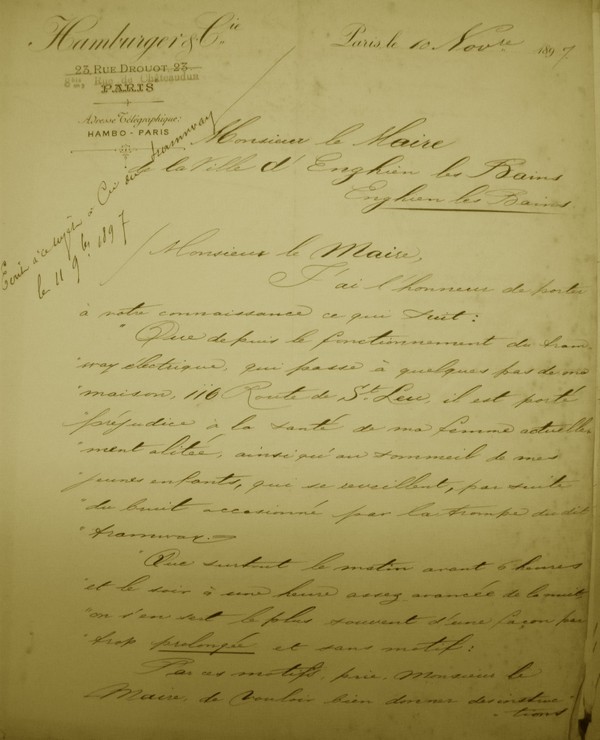 Hamburger & Cie
Paris, le 10 Novre 1897
23, RUE DROUOT, 23
Rue de Châteaudun
PARIS
Adresse Télégraphique:
HAMBO-PARIS
Ecrit à ce sujet à Cie du tramway
le 11 9bre 1897
Monsieur le Maire
de la Ville d'Enghien les Bains
Enghien les Bains
Monsieur le Maire,
J'ai l'honneur de porter
à votre connaissance ce qui suit:
"Que depuis le fonctionnement du tram-
"way électrique, qui passe à quelques pas de ma
"maison, 116 Route de St Leu, il est porté
"préjudice à la santé de ma femme actuelle-
"ment alitée, ainsi qu'au sommeil de mes
"jeunes enfants, qui se reveillent, par suite
"du bruit occasionné par la trompe du dit
"tramway.
"Que surtout le matin avant 6 heures
"et le soir à une heure assez avancée de la nuit
"on s'en sert le plus souvent d'une façon par
"trop prolongée et sans motif:
Par ces motifs, prie, Monsieur le
Maire, de vouloir bien donner des instruc-
-tions